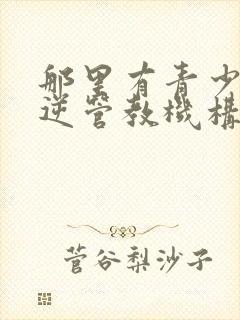 那里有青少
逆管教機構
菅谷梨沙子